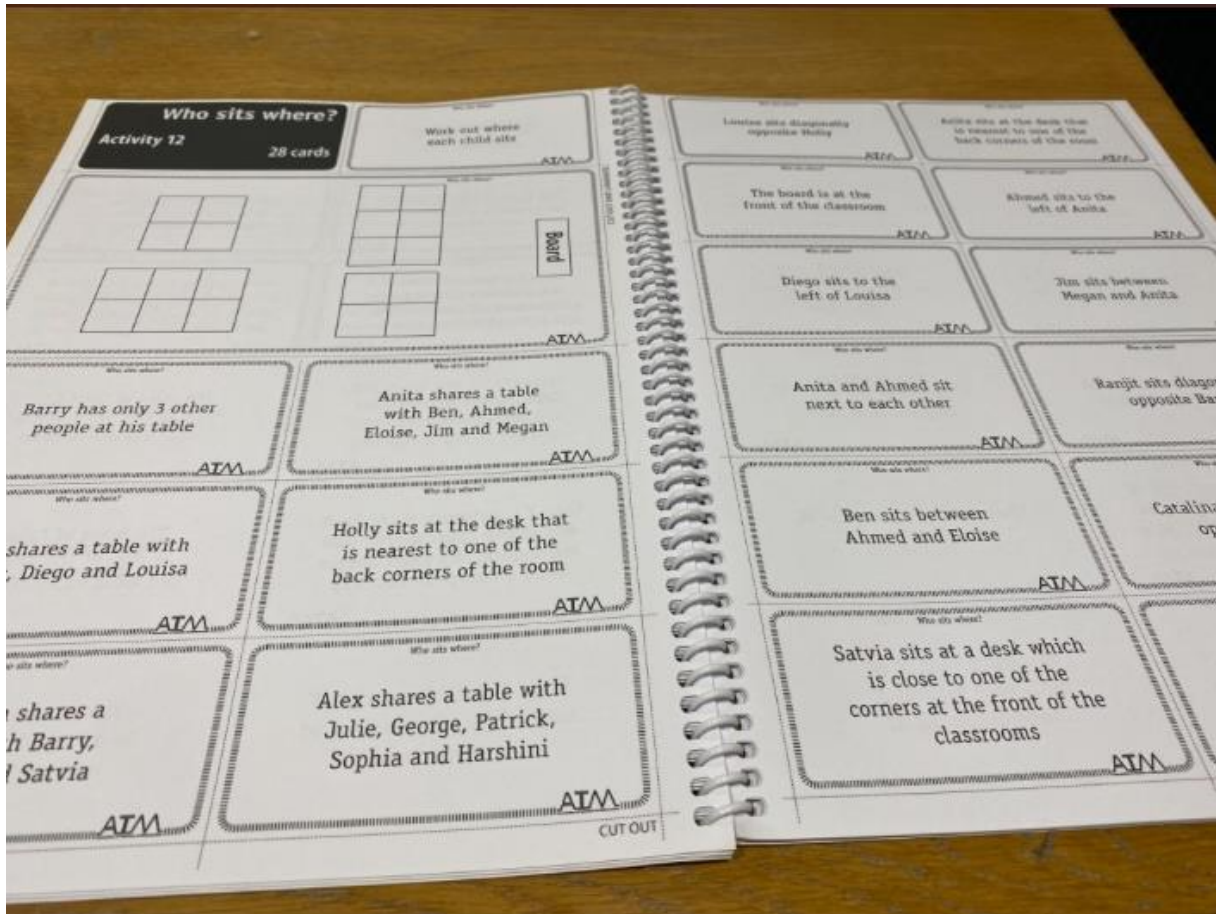 Who sits where?
Activity 12
28 cards
Work out where
each child sits
ATM
Who sits where?
Board
ATM
Who sits where?
Barry has only 3 other
people at his table
ATM
Who sits where?
Anita shares a table
with Ben, Ahmed,
Eloise, Jim and Megan
ATM
Who sits where?
shares a table with
, Diego and Louisa
ATM
Who sits where?
Holly sits at the desk that
is nearest to one of the
back corners of the room
ATM
sits where?
shares a
h Barry,
Satvia
ATM
Who sits where?
Alex shares a table with
Julie, George, Patrick,
Sophia and Harshini
ATM
CUT OUT
Louisa sits diagonally
opposite Holly
ATM
Anita sits at the desk that
is nearest to one of the
back corners of the room
ATM
The board is at the
front of the classroom
ATM
Ahmed sits to the
left of Anita
ATM
Who sits where?
Diego sits to the
left of Louisa
ATM
Who sits where?
Jim sits between
Megan and Anita
Who sits where?
Anita and Ahmed sit
next to each other
ATM
Who sits where?
Ranjit sits diago
opposite Ba
Who sits where?
Ben sits between
Ahmed and Eloise
ATM
Catalina
op
Who sits where?
Satvia sits at a desk which
is close to one of the
corners at the front of the
classrooms
ATM